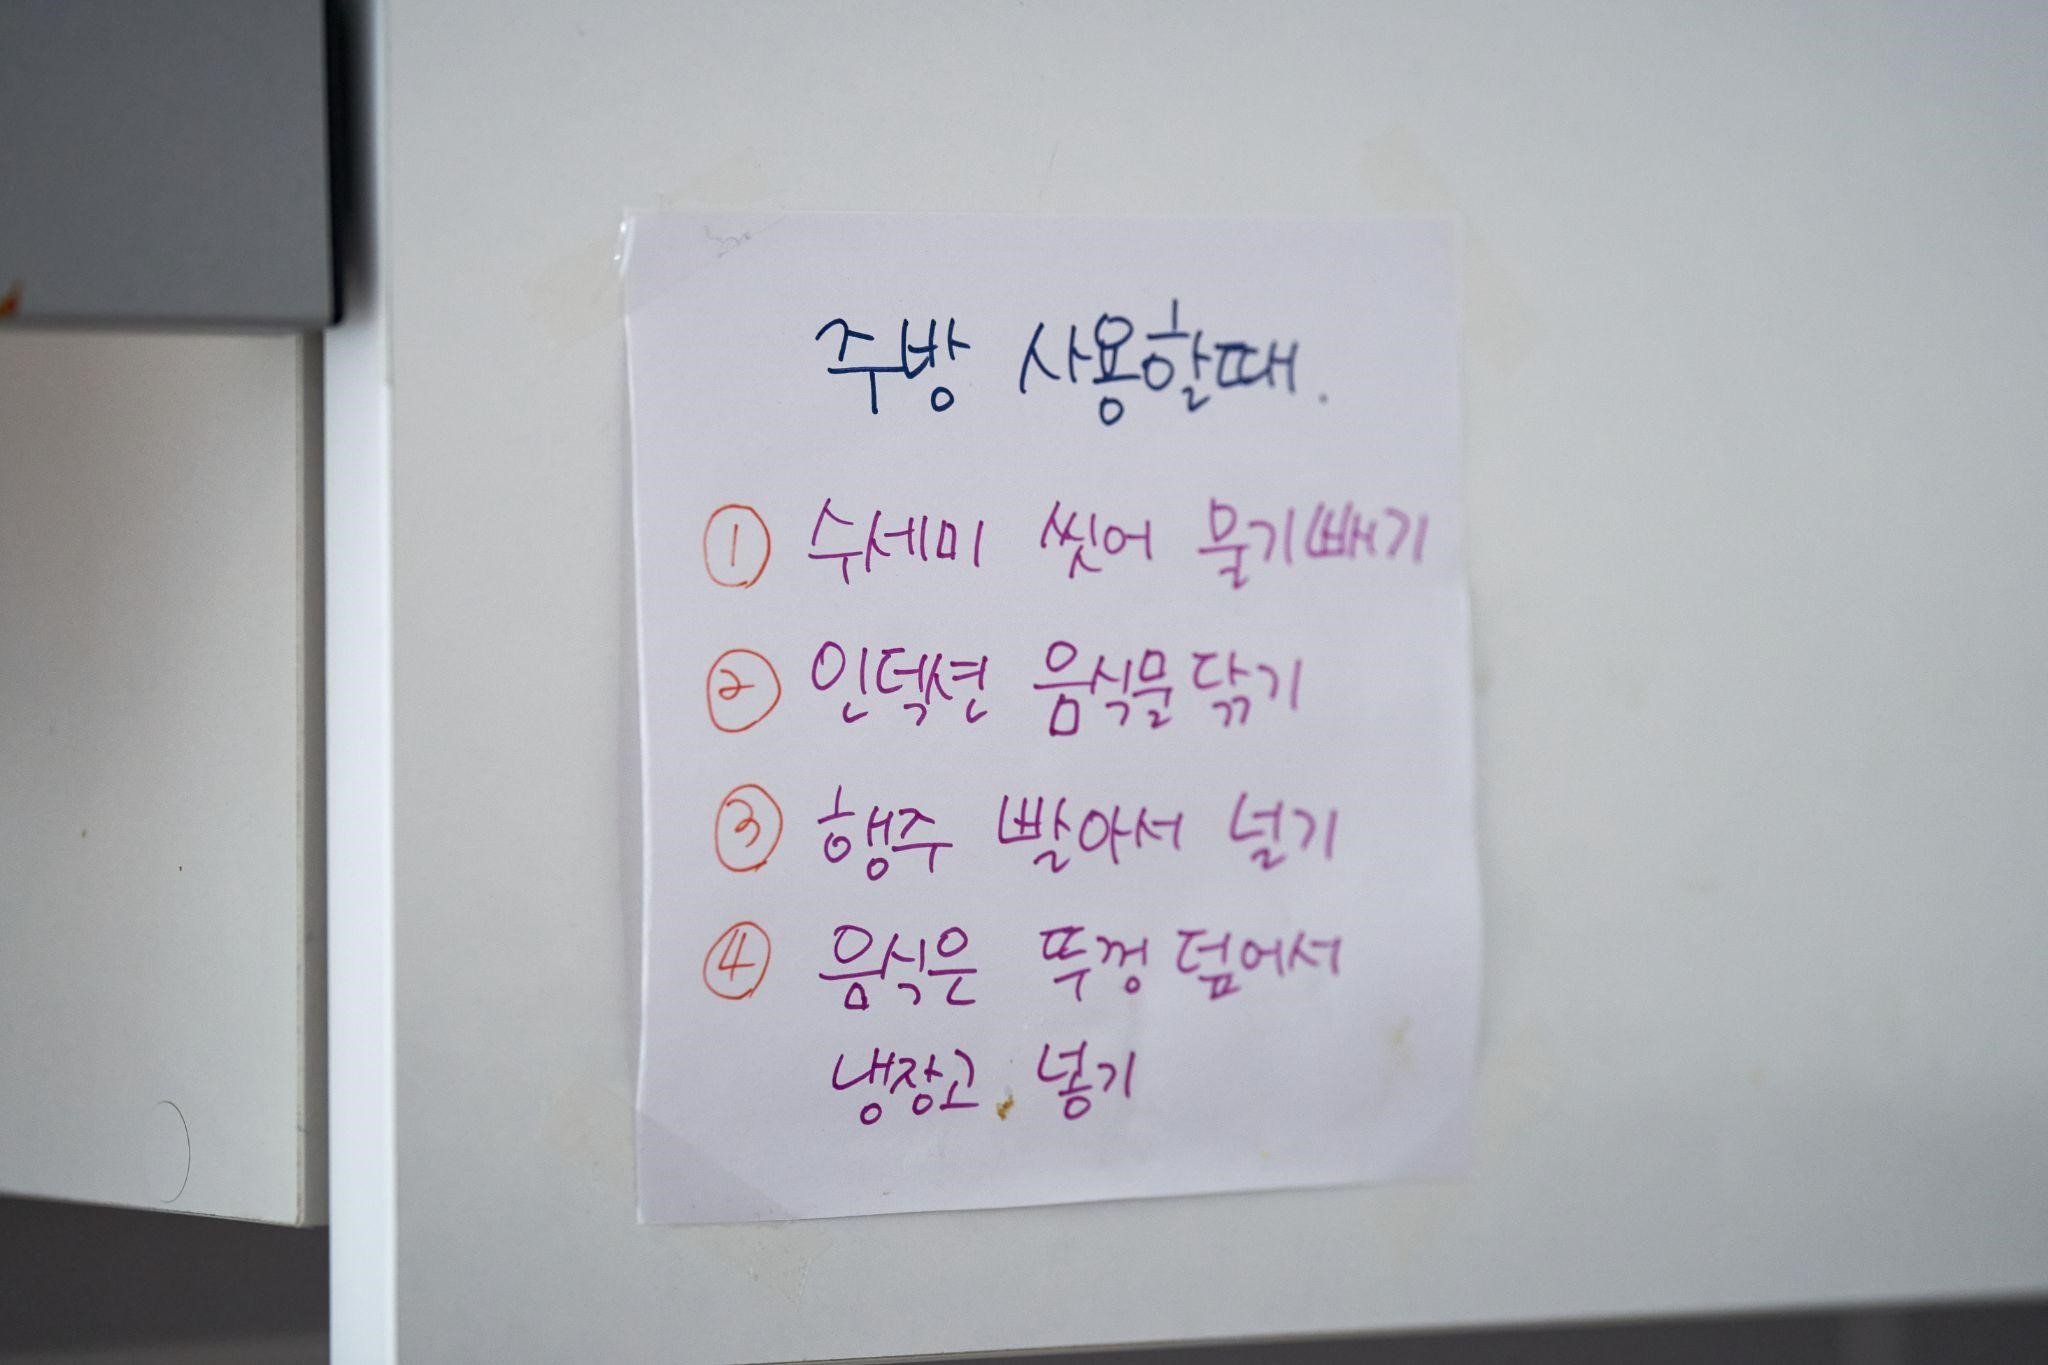 주방 사용할때.
① 수세미 씻어 물기빼기
② 인덕션 음식물 닦기
③ 행주 빨아서 널기
④ 음식은 뚜껑 덮어서
냉장고 넣기